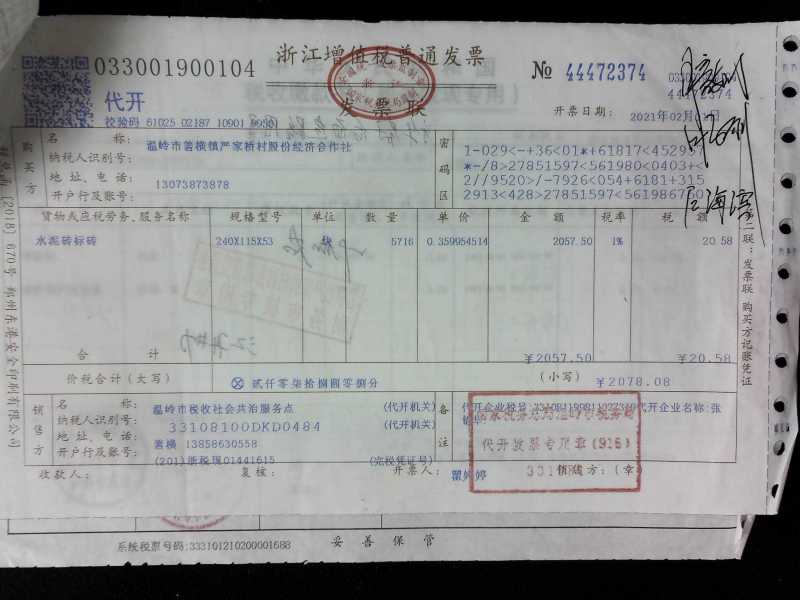 浙江增值税普通发票
033001900104
№ 44472374
代开
校验码 61025 02187 10901
发票联
开票日期: 2021年02月
购买方
名 称: 温岭市箬横镇严家桥村股份经济合作社
纳税人识别号:
地址、电话: 13073873878
开户行及账号:
密码区
1-029<-+36<01*+61817<4529
*-/8>27851597<561980<0403+<
2//9520>/-7926<054+6181+315
2913<428>27851597<56198
货物或应税劳务、服务名称 规格型号 单位 数量 单价 金额 税率 税额
水泥砖标砖 240X115X53 块 5716 0.359954514 2057.50 1% 20.58
合 计 ¥2057.50 ¥20.58
价税合计(大写) ⊗ 贰仟零柒拾捌圆零捌分 (小写) ¥2078.08
销售方
名 称: 温岭市税收社会共治服务点 (代开机关)
纳税人识别号: 33108100DKD0484 (代开机关)
地址、电话: 箬横 13858630558
开户行及账号: (201)浙税现01441615 (完税凭证号)
备注
代开企业名称:张
代开发票专用章
收款人: 复核: 开票人: 瞿婷婷 销售方:(章)
第二联:发票联 购买方记账凭证
[2018] 670号 郑州东港安全印刷有限公司
系统税票号码:333101210200001688 妥善保管